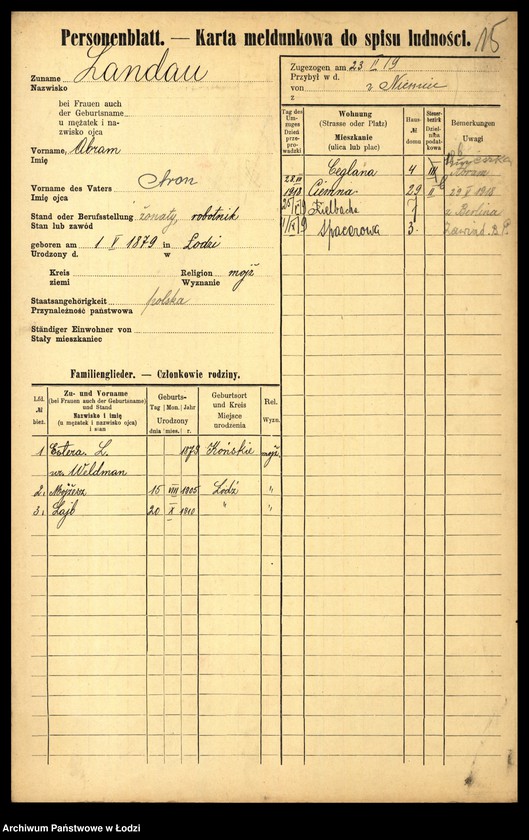 Personenblatt. — Karta meldunkowa do spisu ludności. 15
Zuname Landau
Nazwisko
bei Frauen auch
der Geburtsname
u mężatek i na-
zwisko ojca
Vorname, Abram
Imię
Vorname des Vaters Aron
Imię ojca
Stand oder Berufsstellung żonaty, robotnik
Stan lub zawód
geboren am 1 V 1879 in Łodzi
Urodzony d. w
Kreis Religion mojż
ziemi Wyznanie
Staatsangehörigkeit polska
Przynależność państwowa
Ständiger Einwohner von
Stały mieszkaniec
Zugezogen am 23 II 19
Przybył w d.
von z Niemiec
z
Tag des Um-zuges Dzień prze-prowadzki
Wohnung (Strasse oder Platz) Mieszkanie (ulica lub plac)
Haus- № domu
Steuer-bezirk Dziel-nica podat-kowa
Bemerkungen Uwagi
Ceglana 4 III
1918 Ciemna 29 II 29 V 1918
Kielbacha 7 z Berlina
Spacerowa 3.
Familienglieder. — Członkowie rodziny.
Lfd. № bież.
Zu- und Vorname (bei Frauen auch der Geburtsname) und Stand Nazwisko i imię (u mężatek i nazwisko ojca) i stan
Geburts- Tag Mon. Jahr Urodzony dnia mies. r.
Geburtsort und Kreis Miejsce urodzenia
Rel. Wyzn.
1 Estera L. 1873 Końskie mojż
ur. Weldman
2. Mojżesz 15 VIII 1905 Łódź "
3. Lajb 20 X 1910 " "
Archiwum Państwowe w Łodzi